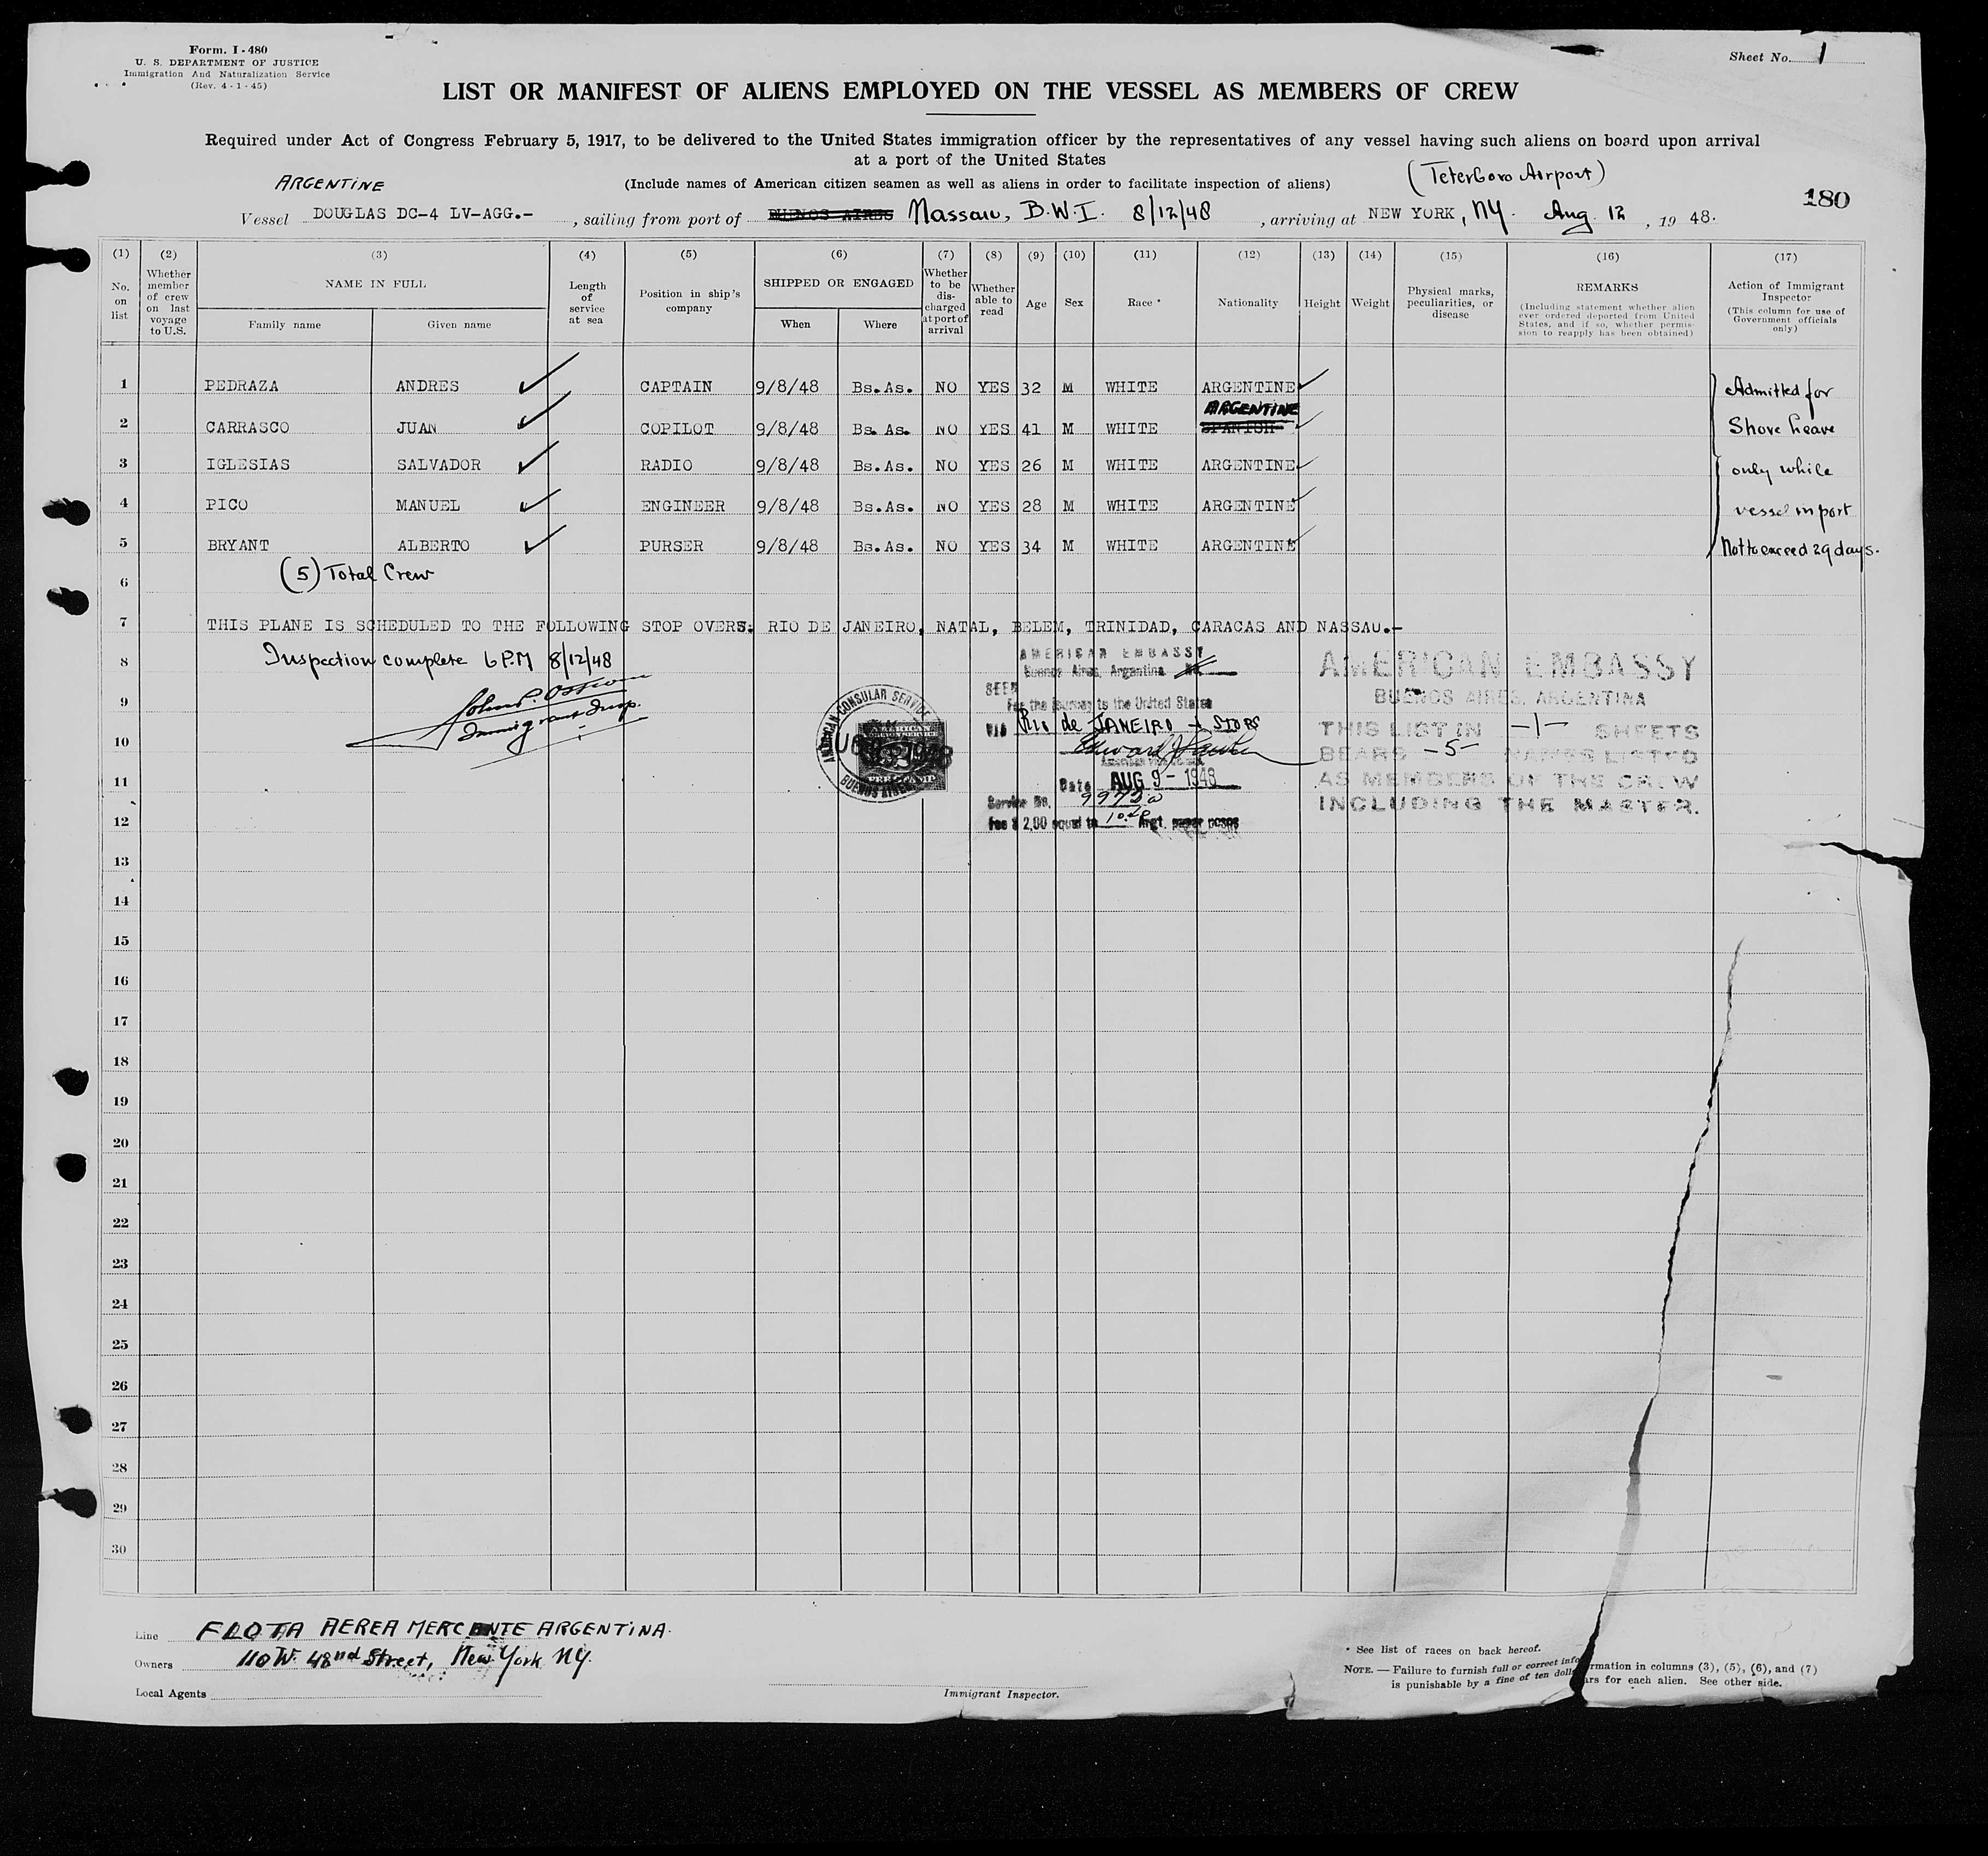 Form. I-480
U. S. DEPARTMENT OF JUSTICE
Immigration And Naturalization Service
(Rev. 4-1-45)
Sheet No. 1
LIST OR MANIFEST OF ALIENS EMPLOYED ON THE VESSEL AS MEMBERS OF CREW
Required under Act of Congress February 5, 1917, to be delivered to the United States immigration officer by the representatives of any vessel having such aliens on board upon arrival
at a port of the United States
(Include names of American citizen seamen as well as aliens in order to facilitate inspection of aliens)
(Teterboro Airport)
ARGENTINE
180
Vessel DOUGLAS DC-4 LV-AGG.- , sailing from port of BUENOS AIRES Nassau, B.W.I. 8/12/48 , arriving at NEW YORK, NY. Aug. 12 , 19 48.
(1) (2) (3) (4) (5) (6) (7) (8) (9) (10) (11) (12) (13) (14) (15) (16) (17)
No. on list
Whether member of crew on last voyage to U.S.
NAME IN FULL
Family name Given name
Length of service at sea
Position in ship's company
SHIPPED OR ENGAGED
When Where
Whether to be discharged at port of arrival
Whether able to read
Age
Sex
Race *
Nationality
Height
Weight
Physical marks, peculiarities, or disease
REMARKS
(Including statement whether alien ever ordered deported from United States, and if so, whether permission to reapply has been obtained)
Action of Immigrant Inspector
(This column for use of Government officials only)
1 PEDRAZA ANDRES CAPTAIN 9/8/48 Bs.As. NO YES 32 M WHITE ARGENTINE Admitted for
ARGENTINE
2 CARRASCO JUAN COPILOT 9/8/48 Bs.As. NO YES 41 M WHITE SPANISH Shore Leave
3 IGLESIAS SALVADOR RADIO 9/8/48 Bs.As. NO YES 26 M WHITE ARGENTINE only while
4 PICO MANUEL ENGINEER 9/8/48 Bs.As. NO YES 28 M WHITE ARGENTINE vessel in port
5 BRYANT ALBERTO PURSER 9/8/48 Bs.As. NO YES 34 M WHITE ARGENTINE Not to exceed 29 days.
(5) Total Crew
6
7 THIS PLANE IS SCHEDULED TO THE FOLLOWING STOP OVERS: RIO DE JANEIRO, NATAL, BELEM, TRINIDAD, CARACAS AND NASSAU.-
8 Inspection complete 6 P.M 8/12/48
John P.
Immigrant Insp.
AMERICAN CONSULAR SERVICE
BUENOS AIRES
AMERICAN
FEE STAMP
AMERICAN EMBASSY
Buenos Aires, Argentina
SEEN
For the journey to the United States
VIA Rio de JANEIRO + STOPS
Edward J.
Date AUG 9 - 1948
Service No. 9973
Fee $ 2.00 equal to Argt. paper pesos
AMERICAN EMBASSY
BUENOS AIRES, ARGENTINA
THIS LIST IN -1- SHEETS
BEARS -5- NAMES LISTED
AS MEMBERS OF THE CREW
INCLUDING THE MASTER.
9
10
11
12
13
14
15
16
17
18
19
20
21
22
23
24
25
26
27
28
29
30
Line FLOTA AEREA MERCANTE ARGENTINA.
Owners 110 W. 48nd Street, New York NY.
Local Agents
Immigrant Inspector.
* See list of races on back hereof.
NOTE. — Failure to furnish full or correct information in columns (3), (5), (6), and (7)
is punishable by a fine of ten dollars for each alien. See other side.